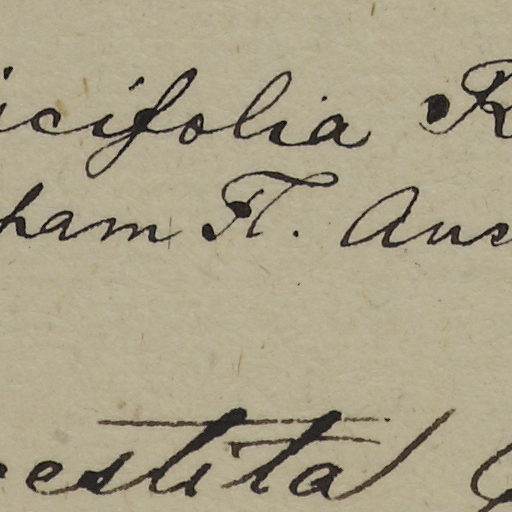 icifolia R
ham Fl. Aus
estita